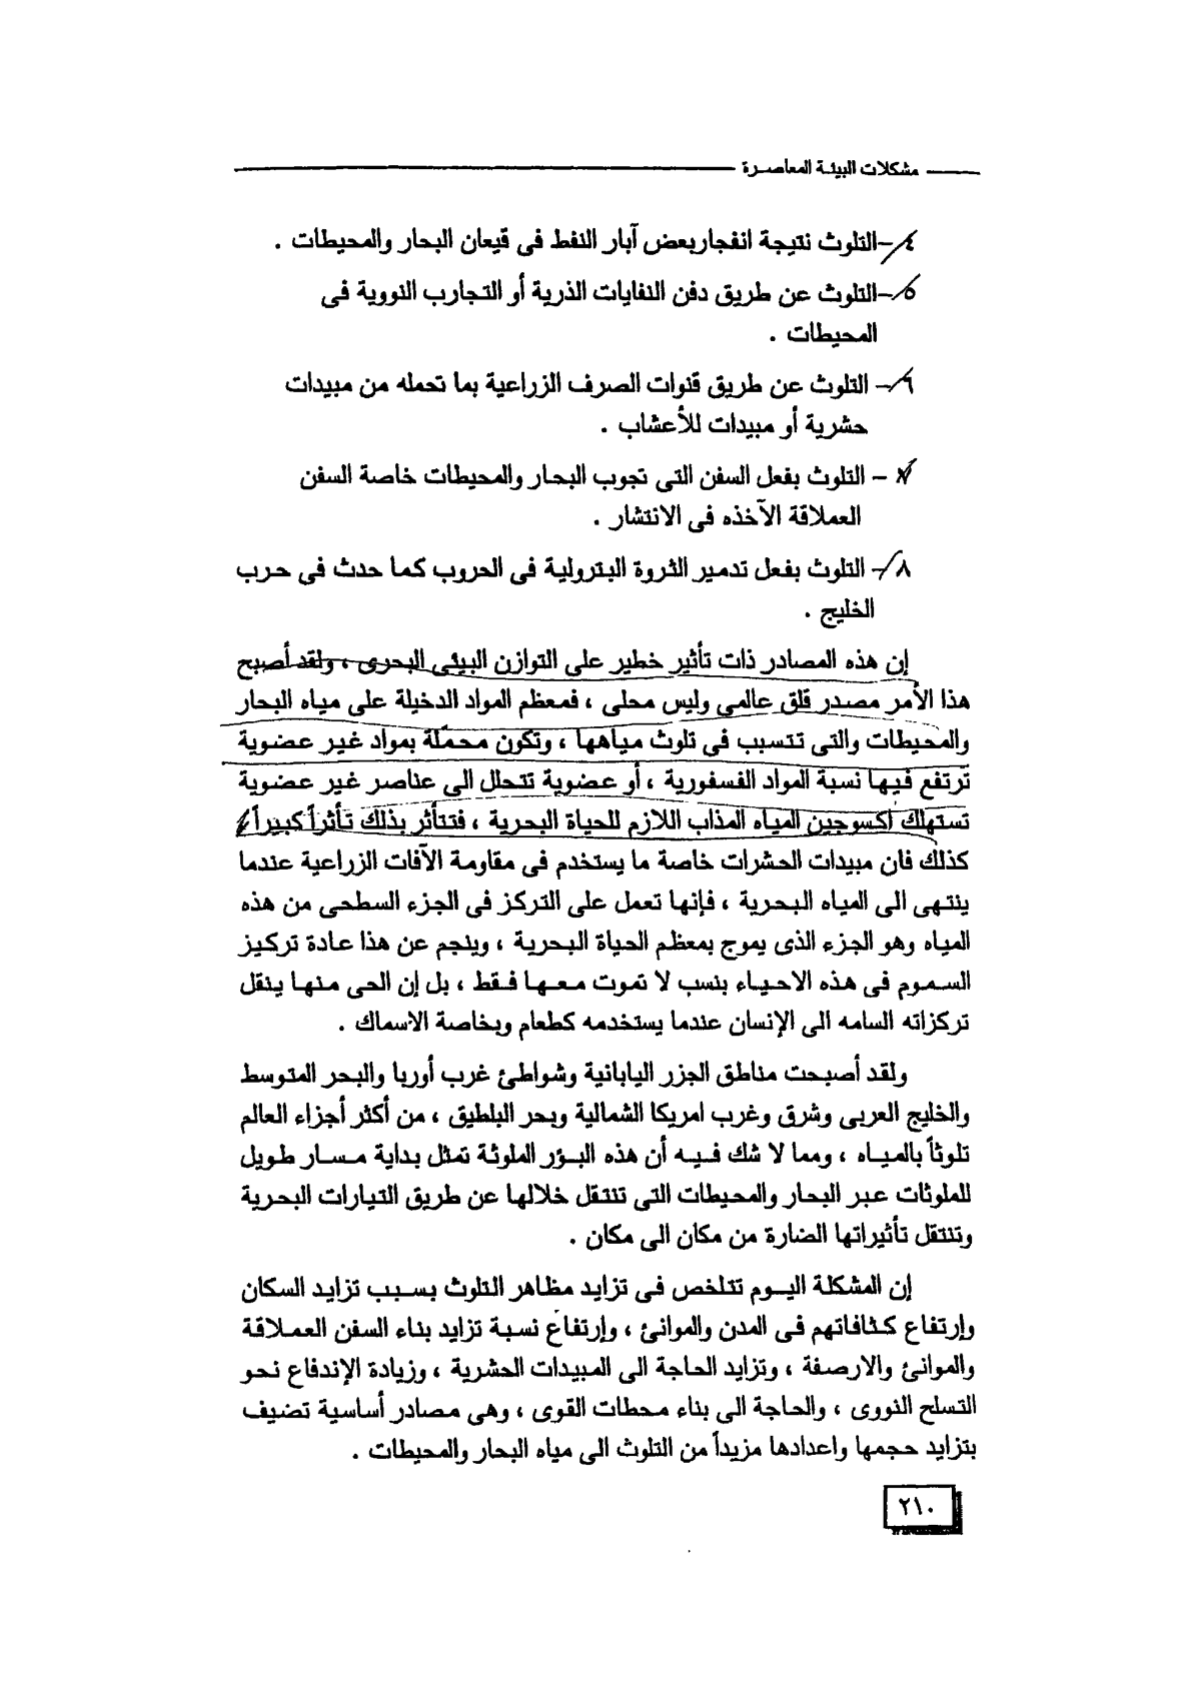 مشكلات البيئة المعاصرة
٤-التلوث نتيجة انفجاربعض آبار النفط فى قيعان البحار والمحيطات .
٥-التلوث عن طريق دفن النفايات الذرية أو التجارب النووية فى
المحيطات .
٦- التلوث عن طريق قنوات الصرف الزراعية بما تحمله من مبيدات
حشرية أو مبيدات للأعشاب .
٧ - التلوث بفعل السفن التى تجوب البحار والمحيطات خاصة السفن
العملاقة الآخذه فى الانتشار .
٨- التلوث بفعل تدمير الثروة البترولية فى الحروب كما حدث فى حرب
الخليج .
إن هذه المصادر ذات تأثير خطير على التوازن البيئى البحرى ، ولقد أصبح
هذا الأمر مصدر قلق عالمى وليس محلى ، فمعظم المواد الدخيلة على مياه البحار
والمحيطات والتى تتسبب فى تلوث مياهها ، وتكون محملة بمواد غير عضوية
ترتفع فيها نسبة المواد الفسفورية ، أو عضوية تتحلل الى عناصر غير عضوية
تستهلك أكسوجين المياه المذاب اللازم للحياة البحرية ، فتتأثر بذلك تأثراً كبيراً
كذلك فان مبيدات الحشرات خاصة ما يستخدم فى مقاومة الآفات الزراعية عندما
ينتهى الى المياه البحرية ، فإنها تعمل على التركز فى الجزء السطحى من هذه
المياه وهو الجزء الذى يموج بمعظم الحياة البحرية ، وينجم عن هذا عادة تركيز
السموم فى هذه الاحياء بنسب لا تموت معها فقط ، بل إن الحى منها ينقل
تركزاته السامه الى الإنسان عندما يستخدمه كطعام وبخاصة الاسماك .
ولقد أصبحت مناطق الجزر اليابانية وشواطئ غرب أوربا والبحر المتوسط
والخليج العربى وشرق وغرب امريكا الشمالية وبحر البلطيق ، من أكثر أجزاء العالم
تلوثاً بالمياه ، ومما لا شك فيه أن هذه البؤر الملوثة تمثل بداية مسار طويل
للملوثات عبر البحار والمحيطات التى تنتقل خلالها عن طريق التيارات البحرية
وتنتقل تأثيراتها الضارة من مكان الى مكان .
إن المشكلة اليوم تتلخص فى تزايد مظاهر التلوث بسبب تزايد السكان
وإرتفاع كثافاتهم فى المدن والموانئ ، وإرتفاع نسبة تزايد بناء السفن العملاقة
والموانئ والارصفة ، وتزايد الحاجة الى المبيدات الحشرية ، وزيادة الإندفاع نحو
التسلح النووى ، والحاجة الى بناء محطات القوى ، وهى مصادر أساسية تضيف
بتزايد حجمها واعدادها مزيداً من التلوث الى مياه البحار والمحيطات .
٢١٠